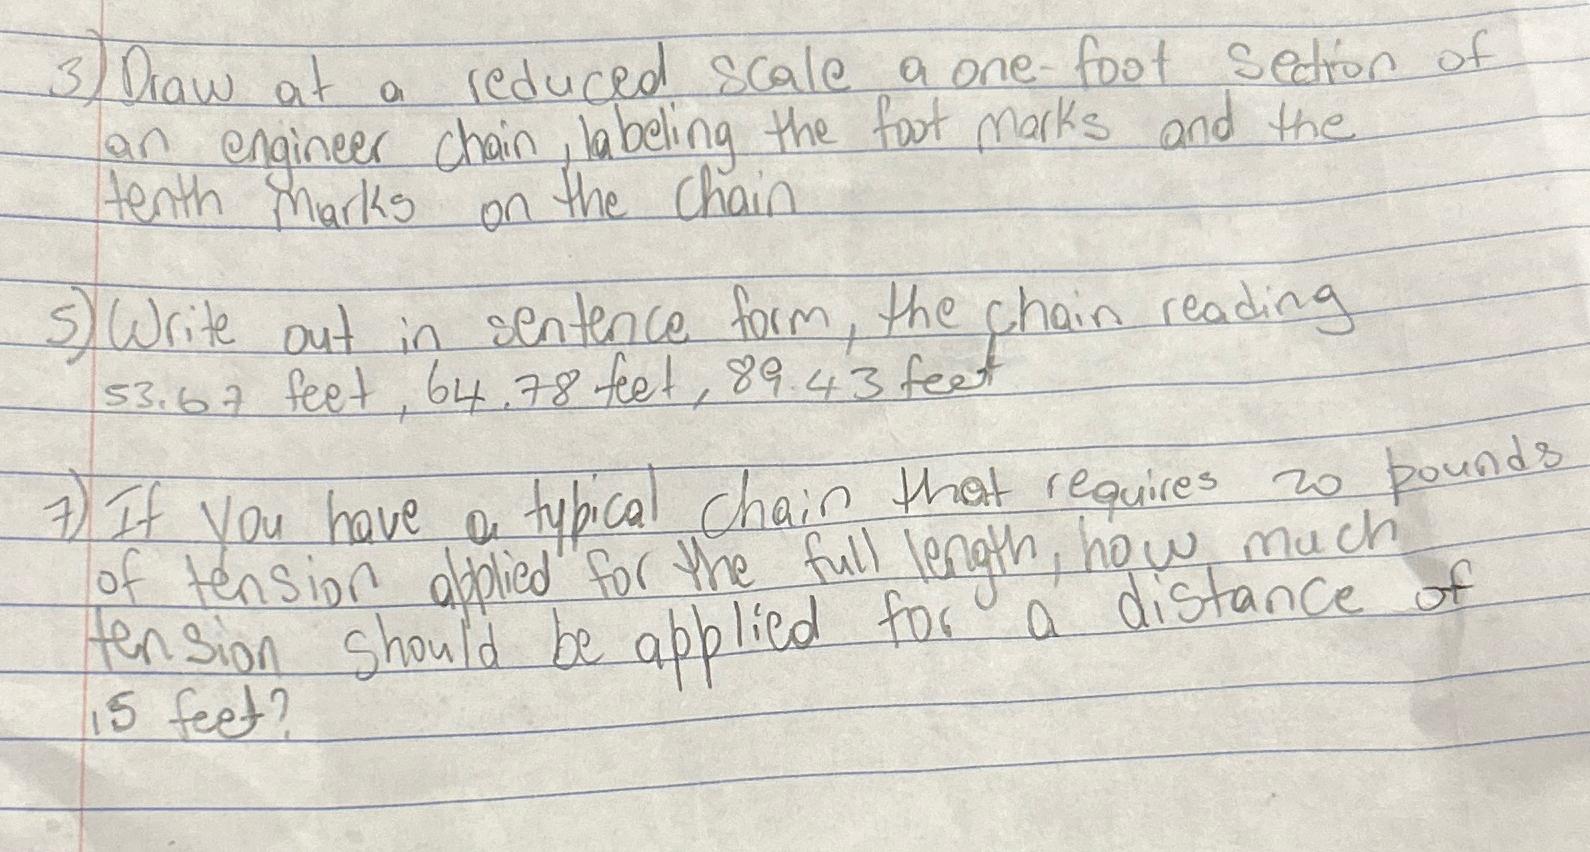 3) Draw at a reduced scale a one-foot section of
an engineer chain, labeling the foot marks and the
tenth marks on the chain
5) Write out in sentence form, the chain reading
53.67 feet, 64.78 feet, 89.43 feet
7) If you have a typical chain that requires 20 pounds
of tension applied for the full length, how much
tension should be applied for a distance of
15 feet?